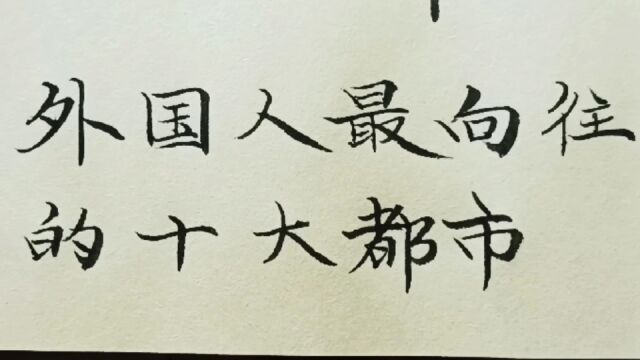 外国人最向往
的十大都市